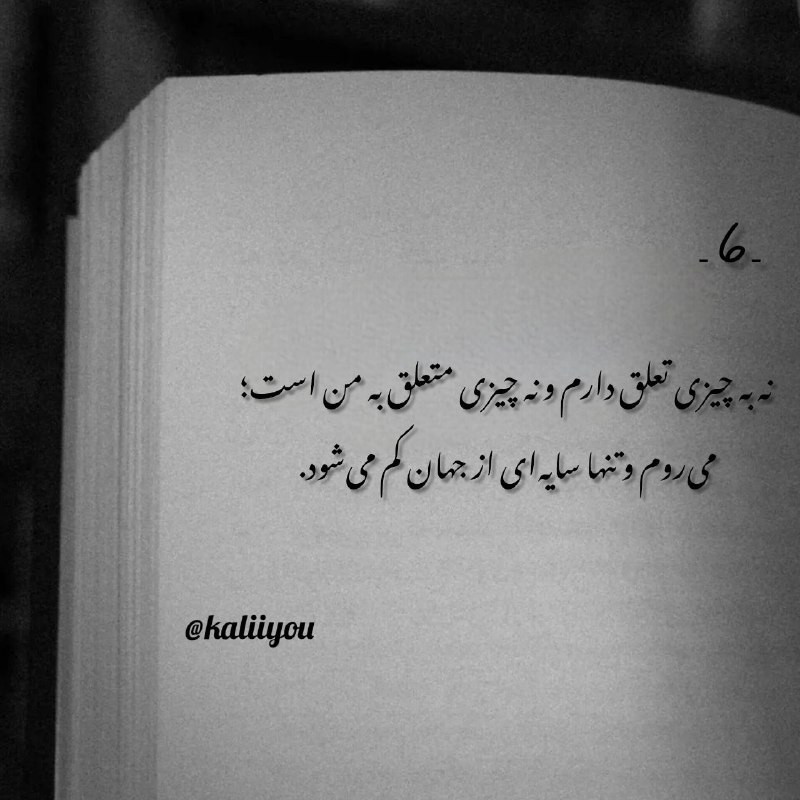 -6-
نه به چیزی تعلق دارم و نه چیزی متعلق به من است؛
می‌روم و تنها سایه‌ای از جهان کم می‌شود.
@kaliiyou